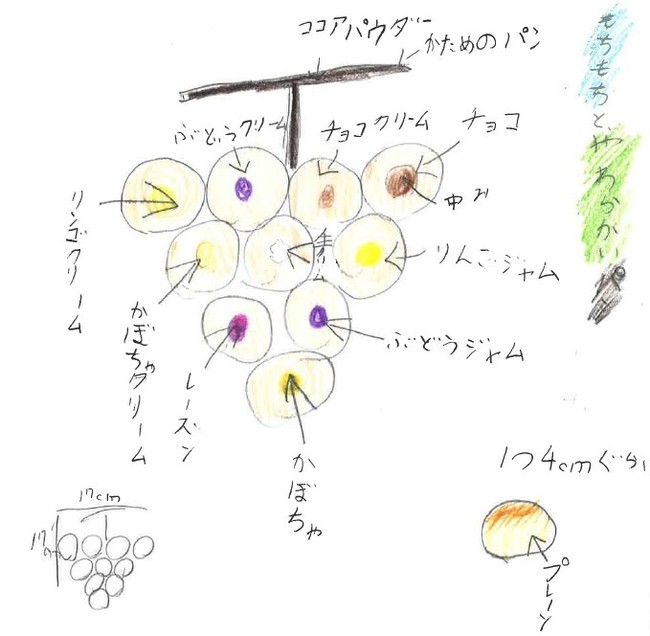 ココアパウダー
かためのパン
ぶどうクリーム
チョコクリーム
チョコ
リンゴクリーム
りんごジャム
かぼちゃクリーム
レーズン
ぶどうジャム
かぼちゃ
もちもちと、
やわらかい
パン
17cm
1つ4cmぐらい
プレーン